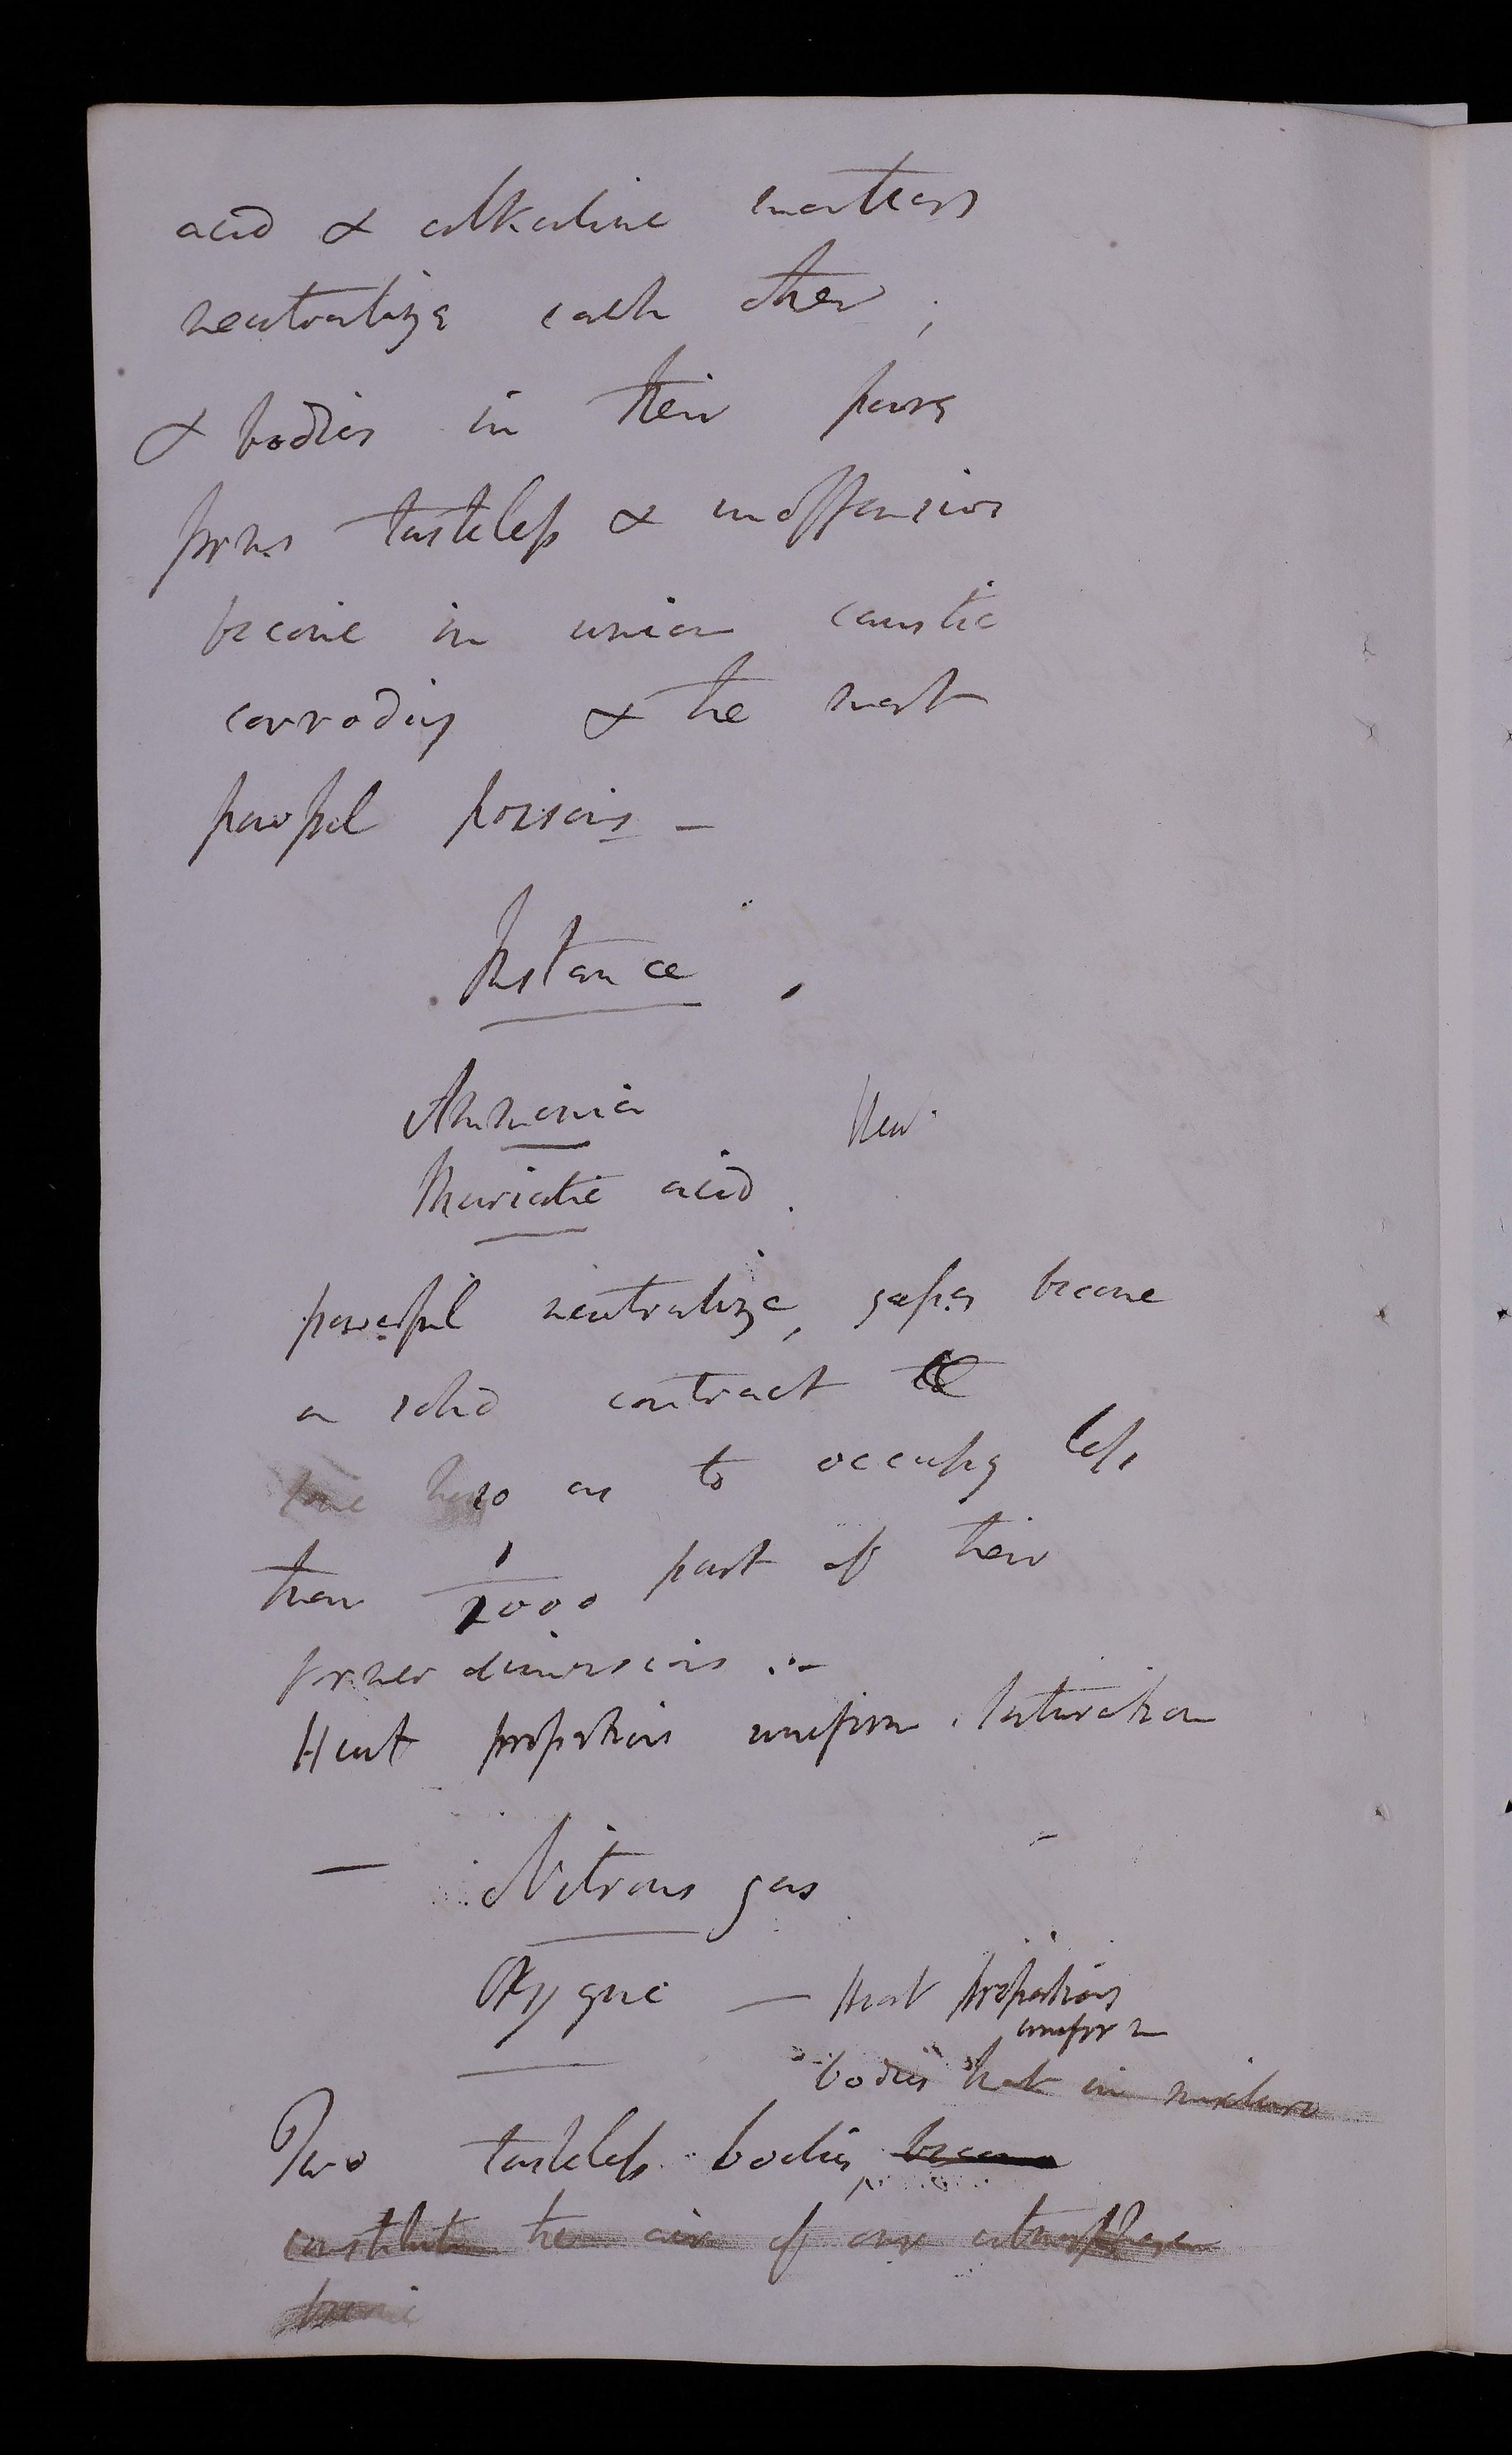 acid & alkaline matters
neutralize each other;
& bodies in their pure
forms tasteless & inoffensive
become in union caustic
corroding & the most
powerful poisons –
Instance,
Ammonia
Muriatic acid.
powerful neutralize, gases become
a solid contract
so as to occupy less
than 1/2000 part of their
former dimensions :–
Heat proportions uniform. Saturation
– Nitrous gas
Oxygene – Heat proportions
uniform
bodies that in mixture
Two tasteless bodies, become
constitute the air of our atmosphere
become